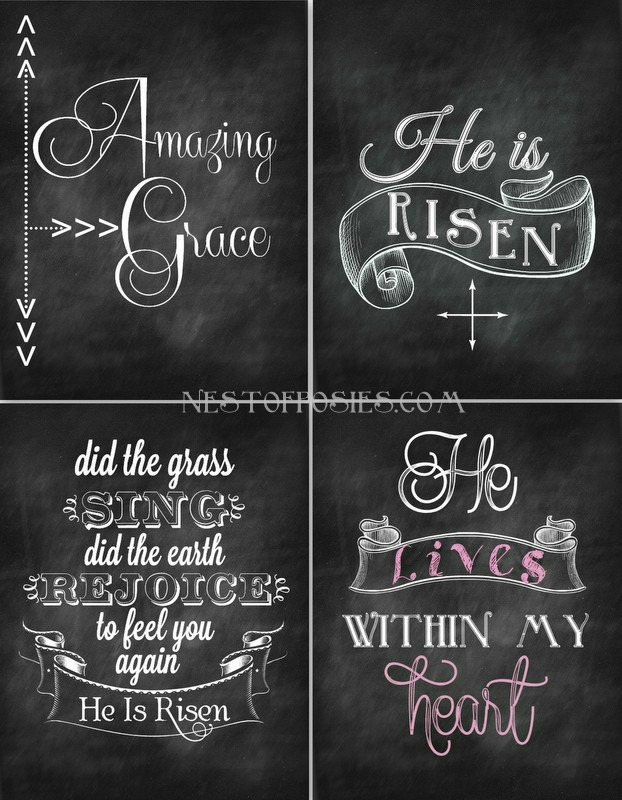 Amazing
Grace
He is
RISEN
NESTOFPOSIES.COM
did the grass
SING
did the earth
REJOICE
to feel you
again
He Is Risen
He
Lives
WITHIN MY
heart